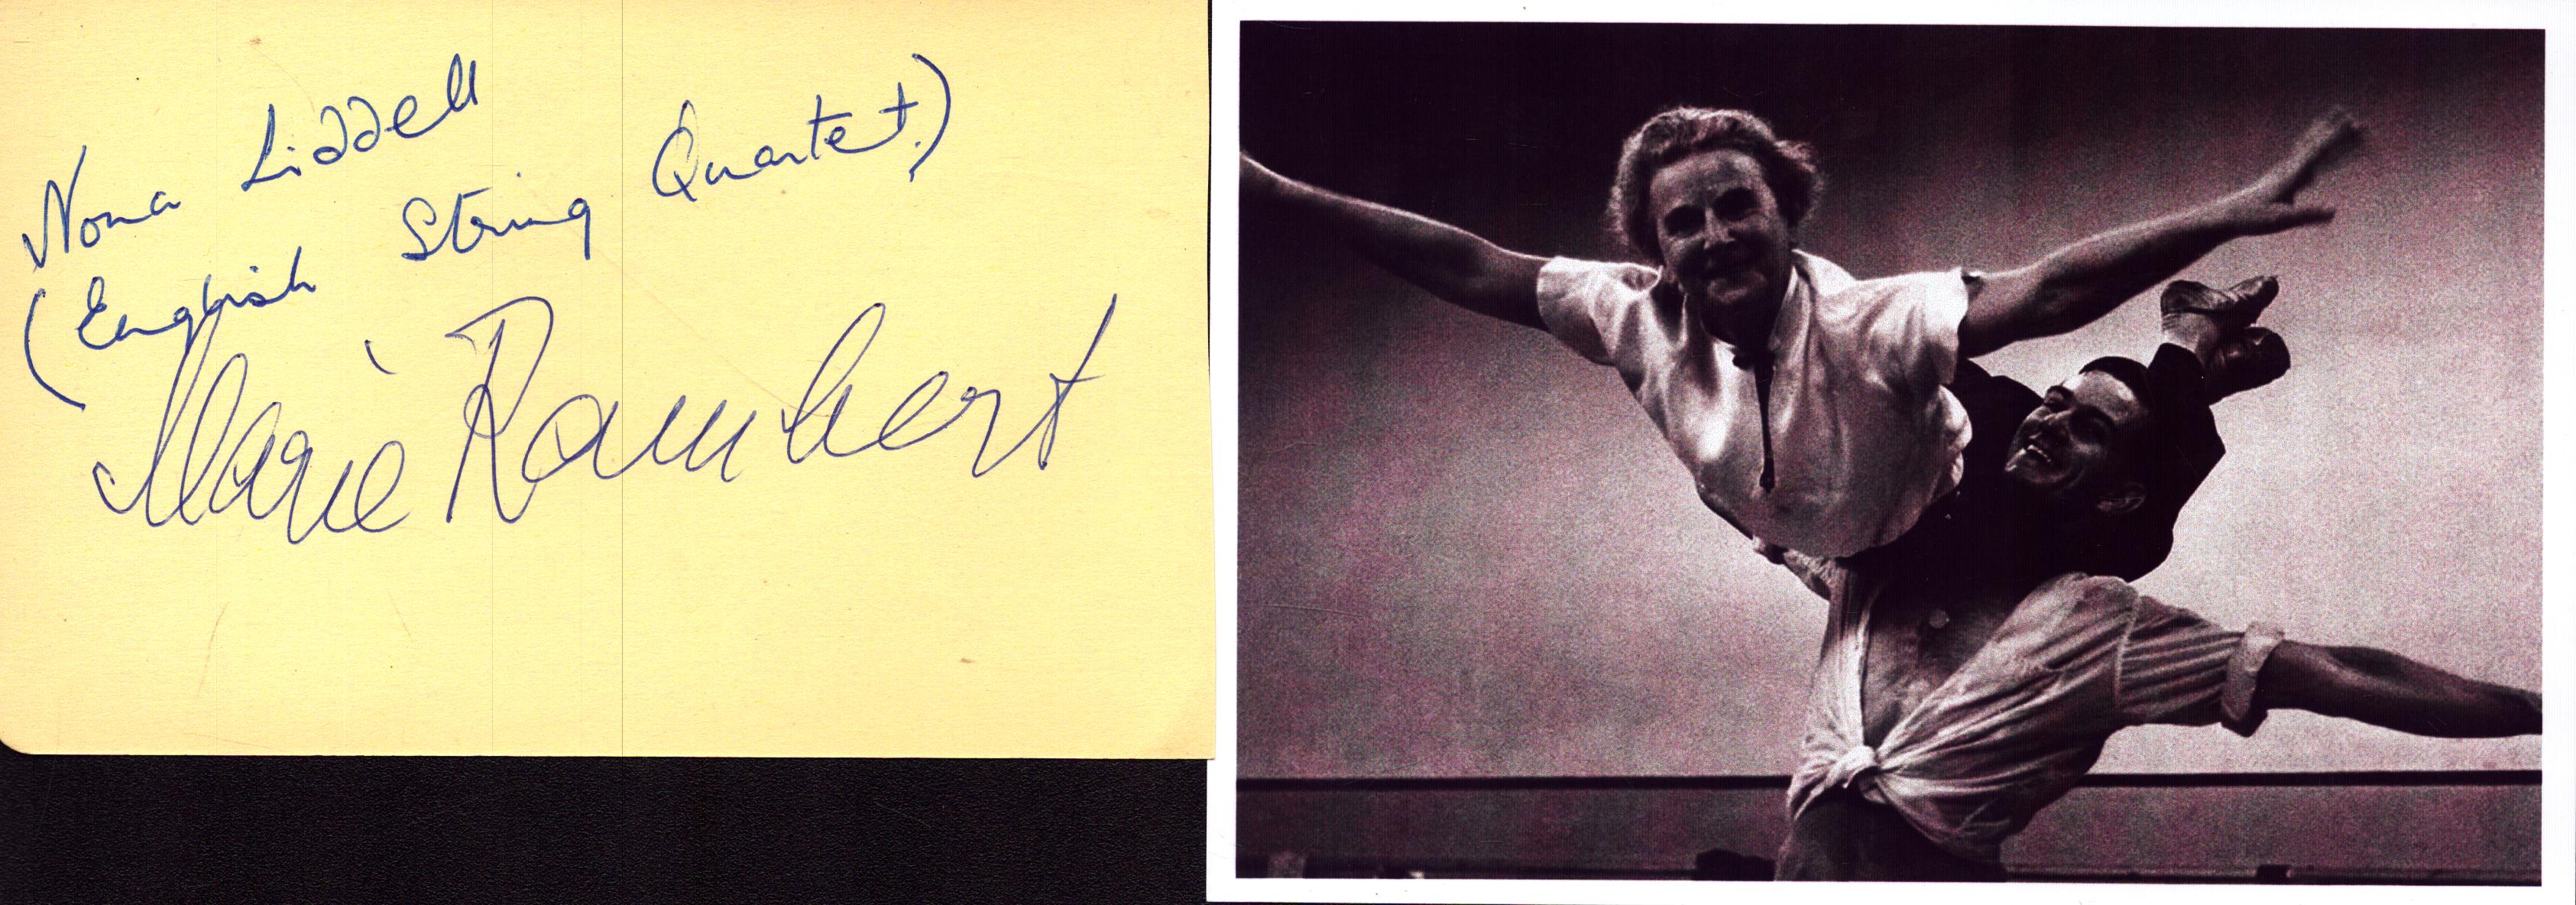 Nona Liddell
(English String Quartet.)
Marie Rambert